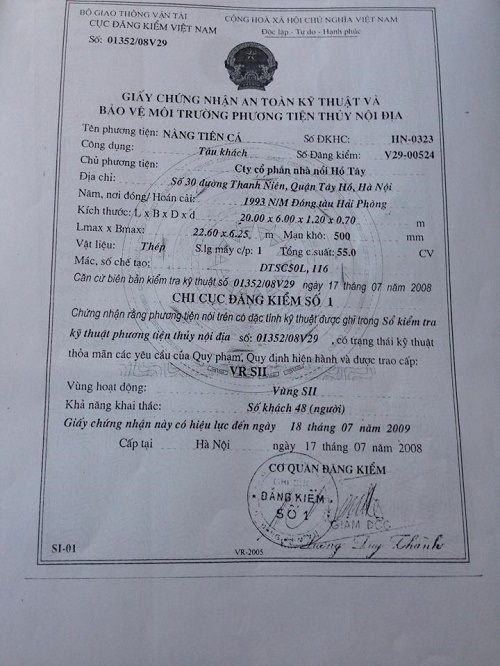 BỘ GIAO THÔNG VẬN TẢI
CỤC ĐĂNG KIỂM VIỆT NAM
Số: 01352/08V29
CỘNG HOÀ XÃ HỘI CHỦ NGHĨA VIỆT NAM
Độc lập - Tự do - Hạnh phúc
GIẤY CHỨNG NHẬN AN TOÀN KỸ THUẬT VÀ
BẢO VỆ MÔI TRƯỜNG PHƯƠNG TIỆN THỦY NỘI ĐỊA
Tên phương tiện: NÀNG TIÊN CÁ Số ĐKHC: HN-0323
Công dụng: Tàu khách Số Đăng kiểm: V29-00524
Chủ phương tiện: Cty cổ phần nhà nổi Hồ Tây
Địa chỉ: Số 30 đường Thanh Niên, Quận Tây Hồ, Hà Nội
Năm, nơi đóng/ Hoán cải: 1993 N/M Đóng tàu Hải Phòng
Kích thước: L x B x D x d 20.00 x 6.00 x 1.20 x 0.70 m
Lmax x Bmax: 22.60 x 6.25 m Mạn khô: 500 mm
Vật liệu: Thép S.lg máy c/p: 1 Tổng c.suất: 55.0 CV
Mác, số chế tạo: DTSC50L, 116
Căn cứ biên bản kiểm tra kỹ thuật số 01352/08V29 ngày 17 tháng 07 năm 2008
CHI CỤC ĐĂNG KIỂM SỐ 1
Chứng nhận rằng phương tiện nói trên có đặc tính kỹ thuật được ghi trong Sổ kiểm tra
kỹ thuật phương tiện thủy nội địa số: 01352/08V29 , có trạng thái kỹ thuật
thỏa mãn các yêu cầu của Quy phạm, Quy định hiện hành và được trao cấp:
VR SII
Vùng hoạt động: Vùng SII
Khả năng khai thác: Số khách 48 (người)
Giấy chứng nhận này có hiệu lực đến ngày 18 tháng 07 năm 2009
Cấp tại Hà Nội ngày 17 tháng 07 năm 2008
CƠ QUAN ĐĂNG KIỂM
ĐĂNG KIỂM
SỐ 1
GIÁM ĐỐC
Duy Thành
SI-01
VR-2005